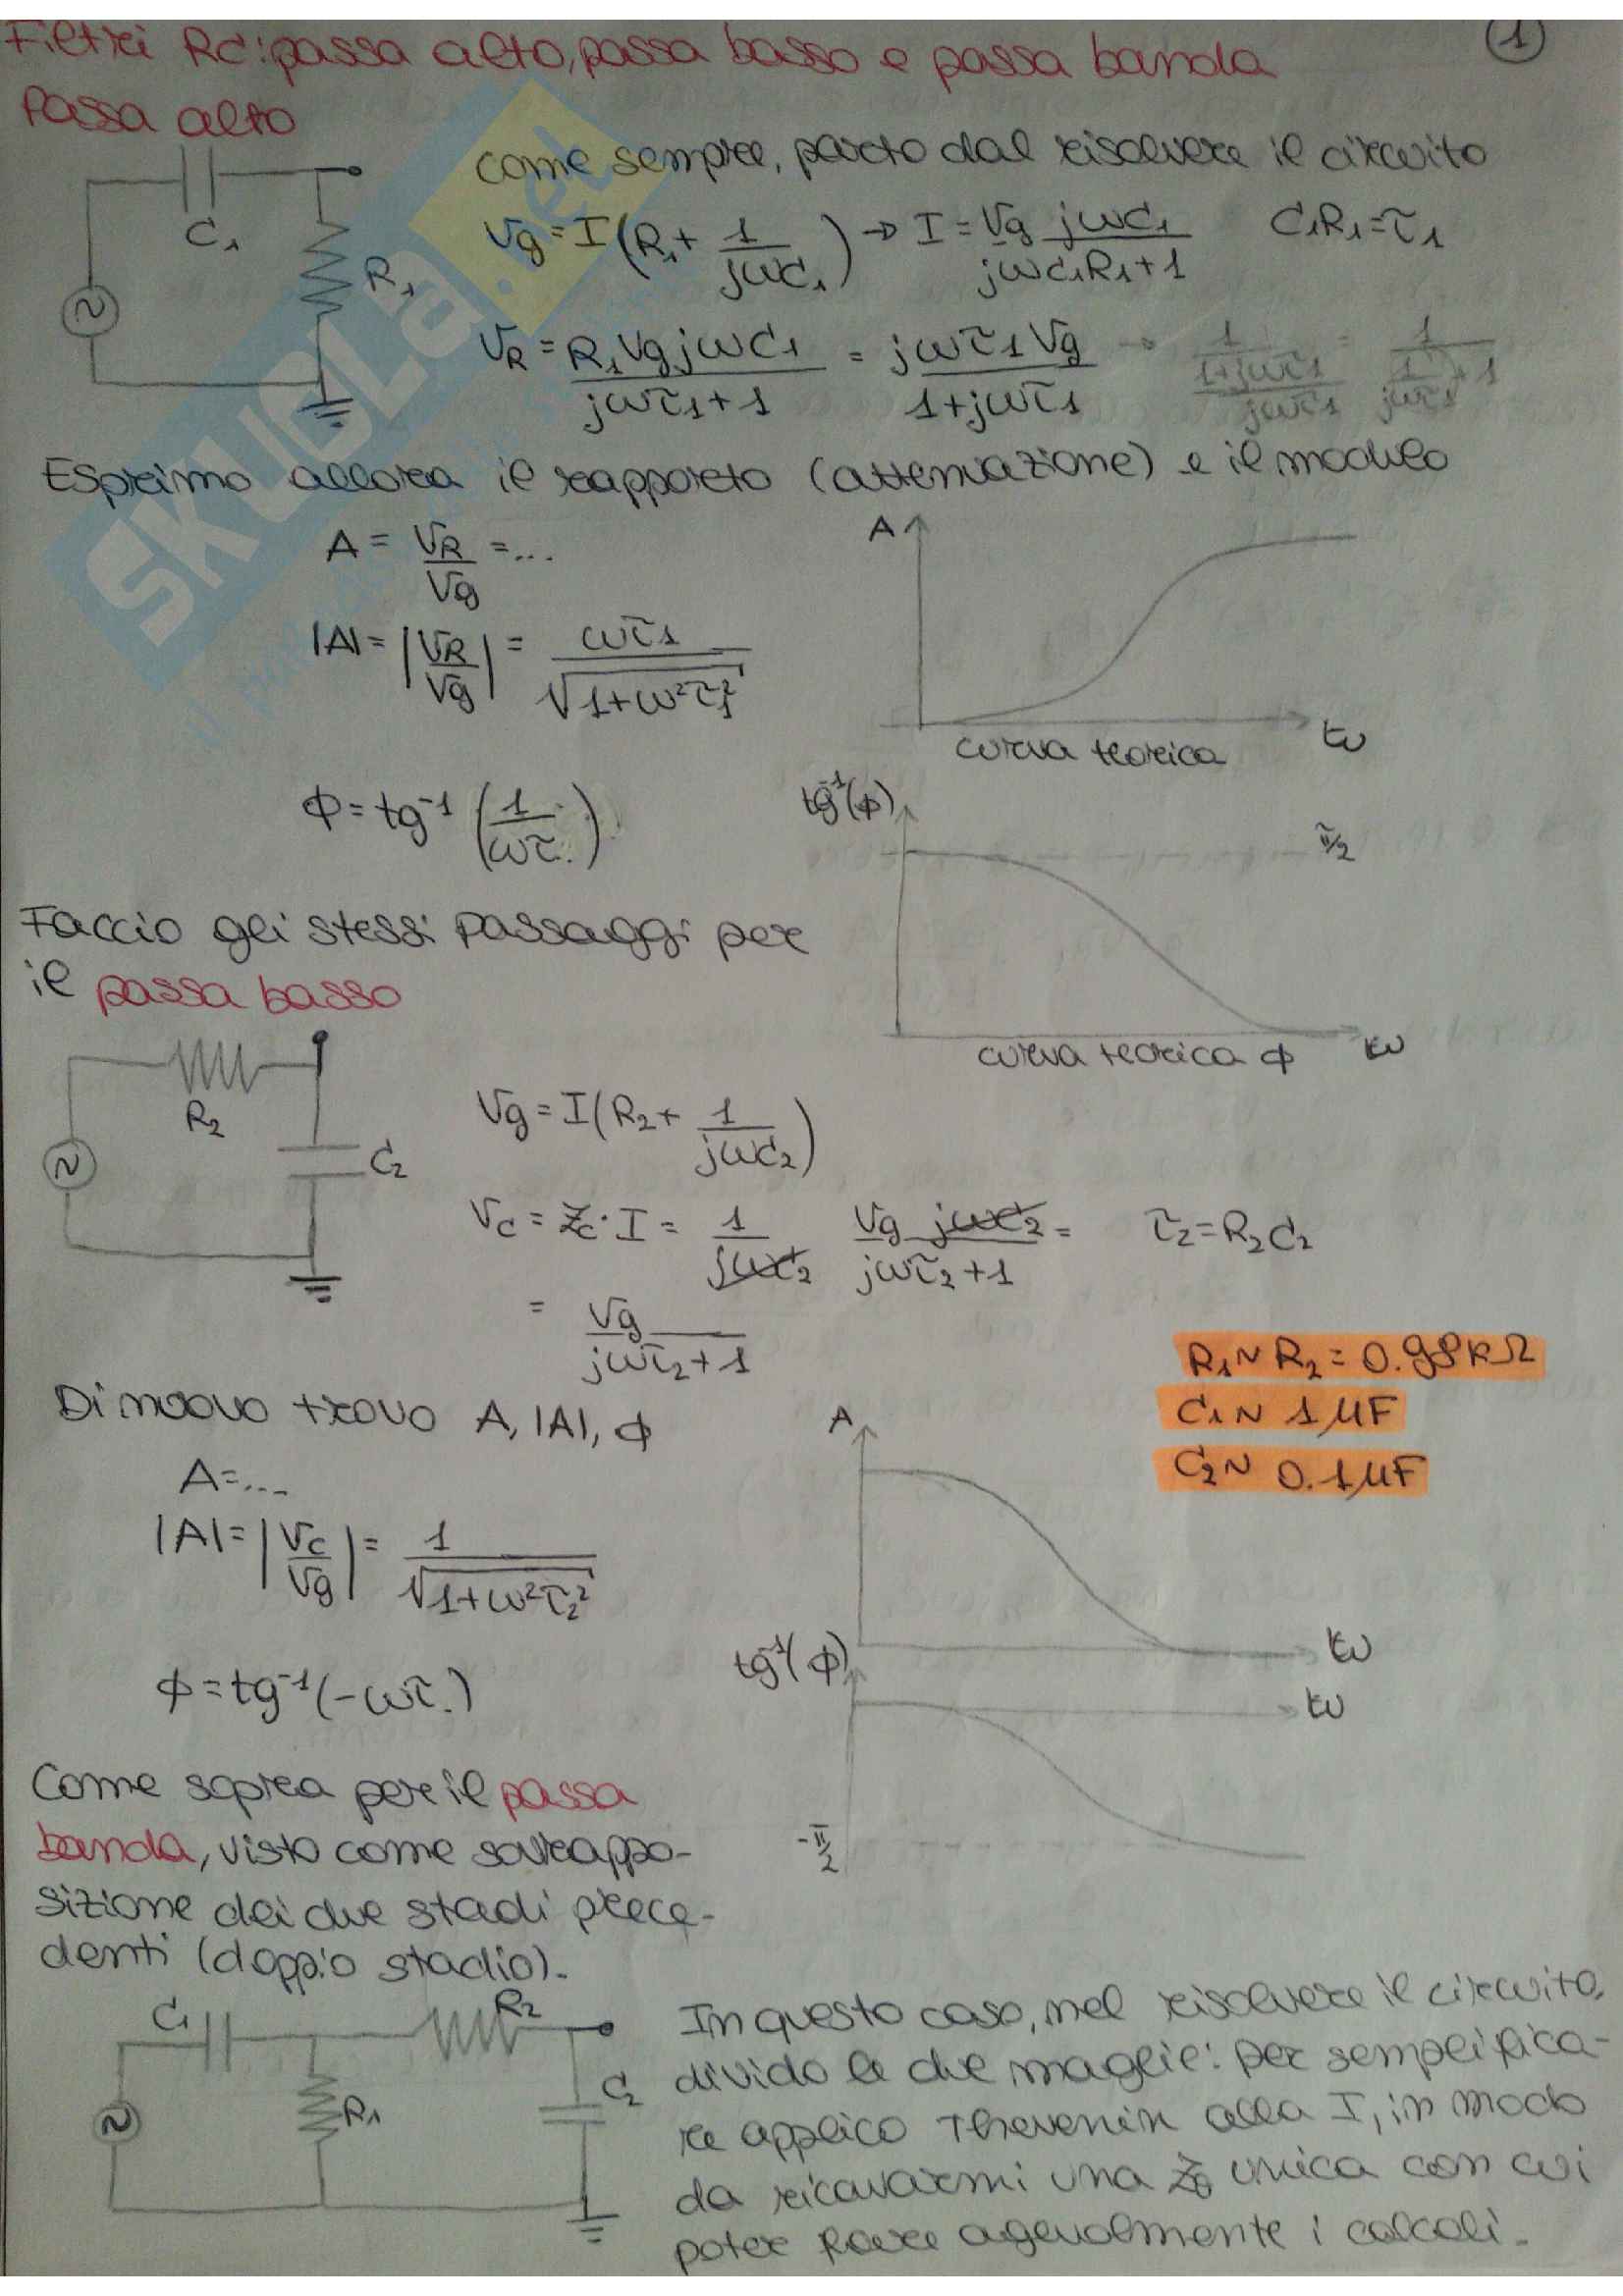 Filtri RC: passa alto, passa basso e passa banda
1
Passa alto
Come sempre, parto dal risolvere il circuito
C₁
R₁
Vg = I(R₁ + 1/jωC₁) → I = Vg jωC₁/jωC₁R₁+1
C₁R₁ = τ₁
V_R = R₁VgjωC₁/jωτ₁+1 = jωτ₁Vg/1+jωτ₁ → 1/(1+jωτ₁/jωτ₁) = 1/(1/jωτ₁ + 1)
Esprimo allora il rapporto (attenuazione) e il modulo
A = V_R/Vg = ...
|A| = |V_R/Vg| = ωτ₁/√1+ω²τ₁²
A
ω
curva teorica
Φ = tg⁻¹(1/ωτ.)
tg⁻¹(Φ)
π/2
ω
curva teorica Φ
Faccio gli stessi passaggi per
il passa basso
R₂
C₂
Vg = I(R₂ + 1/jωC₂)
Vc = Zc · I = 1/jωC₂ Vg jωC₂/jωτ₂+1 =
τ₂ = R₂C₂
= Vg/jωτ₂+1
R₁ ~ R₂ = 0.98 kΩ
C₁ ~ 1 μF
C₂ ~ 0.1 μF
Di nuovo trovo A, |A|, Φ
A = ...
|A| = |Vc/Vg| = 1/√1+ω²τ₂²
A
ω
Φ = tg⁻¹(-ωτ.)
tg⁻¹(Φ)
ω
-π/2
Come sopra per il passa
banda, visto come sovrappo-
sizione dei due stadi prece-
denti (doppio stadio).
C₁
R₂
R₁
C₂
In questo caso, nel risolvere il circuito,
divido le due maglie: per semplifica-
re applico Thevenin alla I, in modo
da ricavarmi una Z₀ unica con cui
poter fare agevolmente i calcoli.
SKUOLa.net